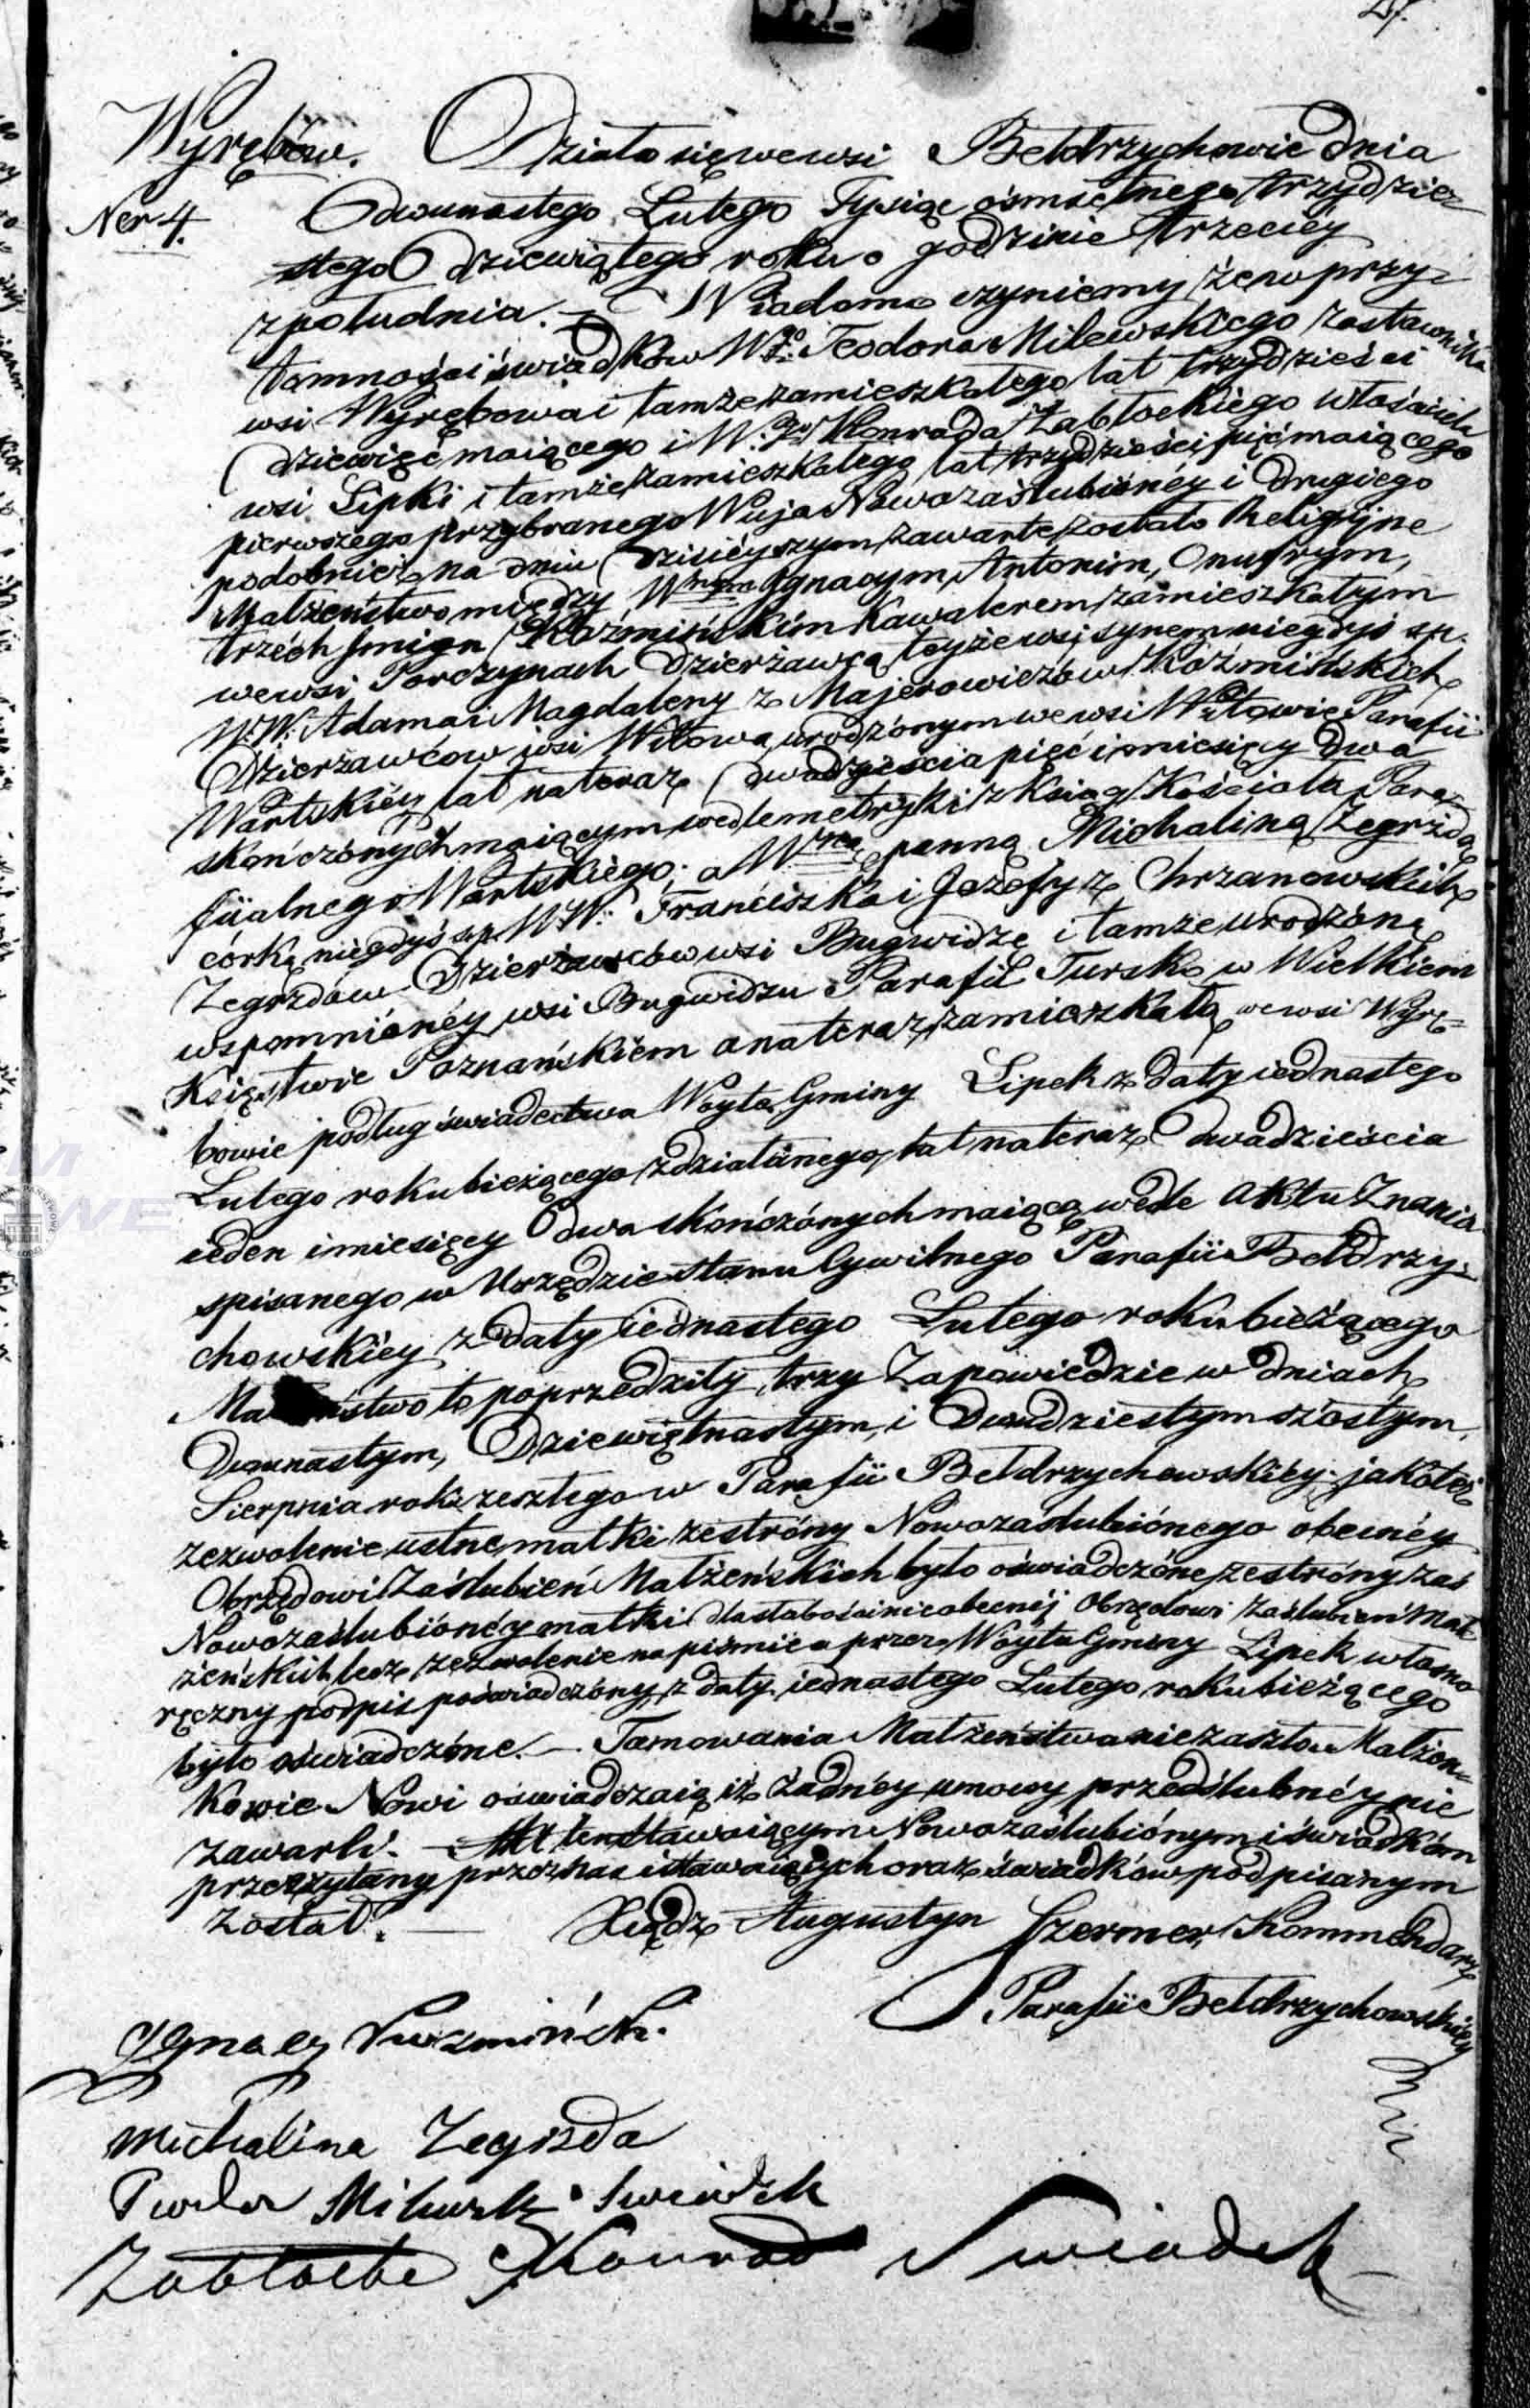 27.
Wyrębów.
Ner 4.
Działo się we wsi Bełdrzychowie dnia
dwunastego Lutego Tysiąc ósmsetnego trzydzies-
stego dziewiątego roku o godzinie trzeciéy
z południa. — Wiadomo czyniemy że w przy-
tomności świadków W.go Teodora Milewskiego Zastawnika
wsi Wyrębowa i tamże zamieszkałego lat trzydzieści
dziewięć maiącego i W.go Konrada Zabłockiego właściciela
wsi Lipki i tamże zamieszkałego lat trzydzieści pięć maiącego
pierwszego przybranego Wuja Nowozaślubionéy i drugiego
podobnież na dniu dzisiéyszym zawarte zostało Religijne
Małżeństwo między Wnym Ignacym, Antonim, Onufrym,
trzéch Imion Koźmińskim Kawalerem zamieszkałym
we wsi Porczynach Dzierżawcą téyże wsi synem niegdyś sp.
W.W. Adama i Magdaleny z Majerowiczów Koźmińskich
Dzierżawców wsi Witowa, urodzonym we wsi Witowie Parafii
Wartskiéy lat na teraz dwadzieścia pięć i miesięcy dwa
skończonych maiącym wedle metryki z Ksiąg Kościoła Para-
fiialnego Wartskiego; a Wną panną Michaliną Zegrzdą
córką niegdyś sp. W.W. Franciszka i Józefy z Chrzanowskich
Zegrzdów Dzierżawców wsi Bugwidze i tamże urodzoną
wspomnionéy wsi Bugwidzu Parafii Tursk w Wielkiem
Księstwie Poznańskiem a na teraz zamieszkałą we wsi Wyrę-
bowie podług świadectwa Woyta Gminy Lipek z daty iednastego
Lutego roku bieżącego zdziałanego, lat na teraz dwadzieścia
ieden i miesięcy dwa skończonych maiącą wedle Aktu Znania
spisanego w Urzędzie Stanu Cywilnego Parafii Bełdrzy-
chowskiéy z daty iednastego Lutego roku bieżącego
Małżeństwo to poprzedziły trzy Zapowiedzie w dniach
Dwunastym, Dziewiętnastym, i Dwudziestym szóstym
Sierpnia roku zeszłego w Parafii Bełdrzychowskiéy; jakoteż
zezwolenie ustne matki ze strony Nowozaślubionego obecnéy
Obrzędowi Zaślubień Małżeńskich było oświadczone, ze strony zaś
Nowozaślubionéy matki dla słabości nieobecnéj Obrzędowi Zaślubień Mał-
żeńskich lecz zezwolenie na piśmie a przez Woyta Gminy Lipek własno-
ręczny podpis poświadczony z daty iednastego Lutego roku bieżącego
było oświadczone. — Tamowania Małżeństwa nie zaszło. Małżon-
kowie Nowi oświadczaią iż żadnéy umowy przedślubnéy nie
zawarli. — Akt ten stawaiącym Nowozaślubionym i świadkom
przeczytany przez nas i stawaiących oraz świadków podpisanym
został. — Xiądz Augustyn Szermer Kommendarz
Parafii Bełdrzychowskiéy
Ignacy Kuzmiński.
Michalina Zegrzda
Teodor Milewski Swiadek
Zabłocki Konrad Swiadek